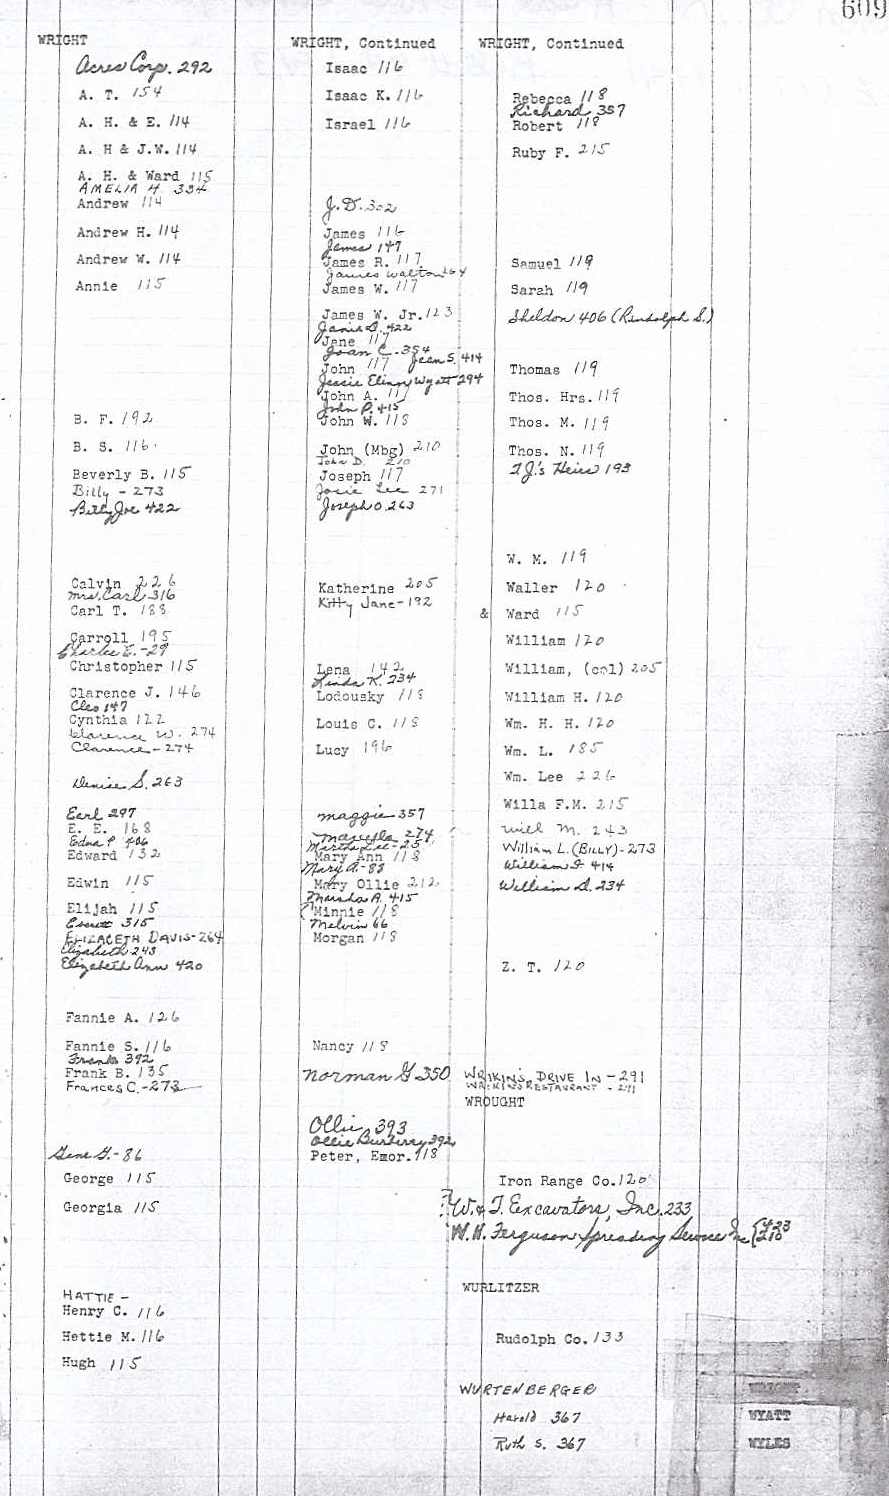 609
WRIGHT
Acres Corp. 292
A. T. 154
A. H. & E. 114
A. H & J.W. 114
A. H. & Ward 115
AMELIA H 334
Andrew 114
Andrew H. 114
Andrew W. 114
Annie 115
B. F. 192
B. S. 116
Beverly B. 115
Billy - 273
Billy Joe 422
Calvin 226
Mrs. Carl 316
Carl T. 188
Carroll 195
Charlie E. - 29
Christopher 115
Clarence J. 146
Cleo 147
Cynthia 122
Clarence W. 274
Clarence - 274
Denise S. 263
Earl 297
E. E. 168
Edna P. 406
Edward 132
Edwin 115
Elijah 115
Everett 315
ELIZABETH DAVIS - 264
Elizabeth 243
Elizabeth Ann 420
Fannie A. 126
Fannie S. 116
Frank 392
Frank B. 135
Frances C. - 273
Gene G. - 86
George 115
Georgia 115
HATTIE -
Henry C. 116
Hettie M. 116
Hugh 115
WRIGHT, Continued
Isaac 116
Isaac K. 116
Israel 116
J. D. 302
James 116
James 147
James R. 117
James Walton 264
James W. 117
James W. Jr. 123
Janie D. 422
Jane 117
Joan C. 354
John 117 Jean S. 414
Jessie Elinor Wyatt 294
John A. 117
John P. 415
John W. 118
John (Mbg) 210
John D. 210
Joseph 117
Josie Lee 271
Joseph O. 263
Katherine 205
Kitty Jane - 192
Lena 142
Linda K. 234
Lodousky 118
Louis C. 118
Lucy 196
Maggie 357
274
Martha Lee - 25
Mary Ann 118
Mary A. - 88
Mary Ollie 212
Marsha A. 415
Minnie 118
Melvin 66
Morgan 118
Nancy 118
Norman G 350
Ollie 393
Ollie Burberry 392
Peter, Emor. 118
WRIGHT, Continued
Rebecca 118
Richard 357
Robert 118
Ruby F. 215
Samuel 119
Sarah 119
Sheldon 406 (Randolph S.)
Thomas 119
Thos. Hrs. 119
Thos. M. 119
Thos. N. 119
T J.'s Heirs 193
W. M. 119
Waller 120
& Ward 115
William 120
William, (col) 205
William H. 120
Wm. H. H. 120
Wm. L. 185
Wm. Lee 226
Willa F.M. 215
Will M. 243
William L. (BILLY) - 273
William 414
William D. 234
Z. T. 120
WRIKIN'S DRIVE IN - 291
WRIKINS RESTAURANT - 291
WROUGHT
Iron Range Co. 120
W. & T. Excavators, Inc. 233
W. H. Ferguson Spreading Service Inc { 423
210
WURLITZER
Rudolph Co. 133
WURTENBERGER
Harold 367
Ruth S. 367
WRIGHT
WYATT
WYLES